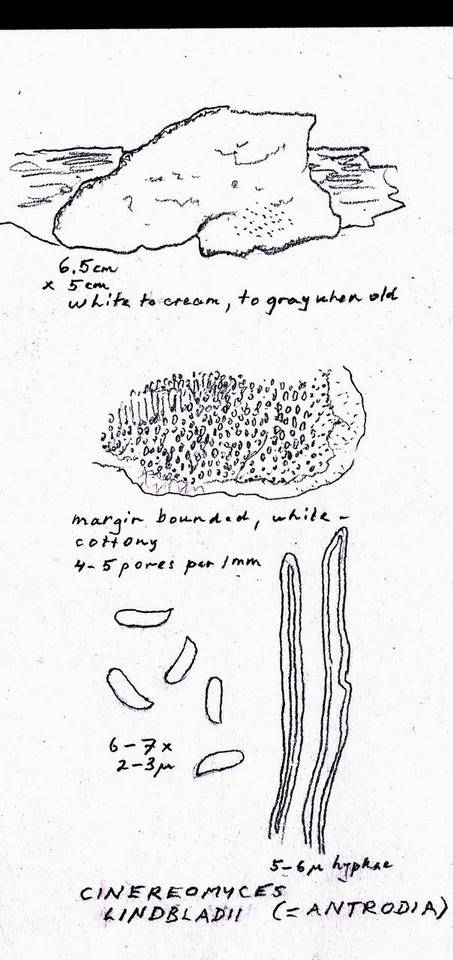 6.5cm
x 5cm
white to cream, to gray when old
margin bounded, white-
cottony
4-5 pores per 1mm
6-7 x
2-3µ
5-6µ hyphae
CINEREOMYCES
LINDBLADII (= ANTRODIA)